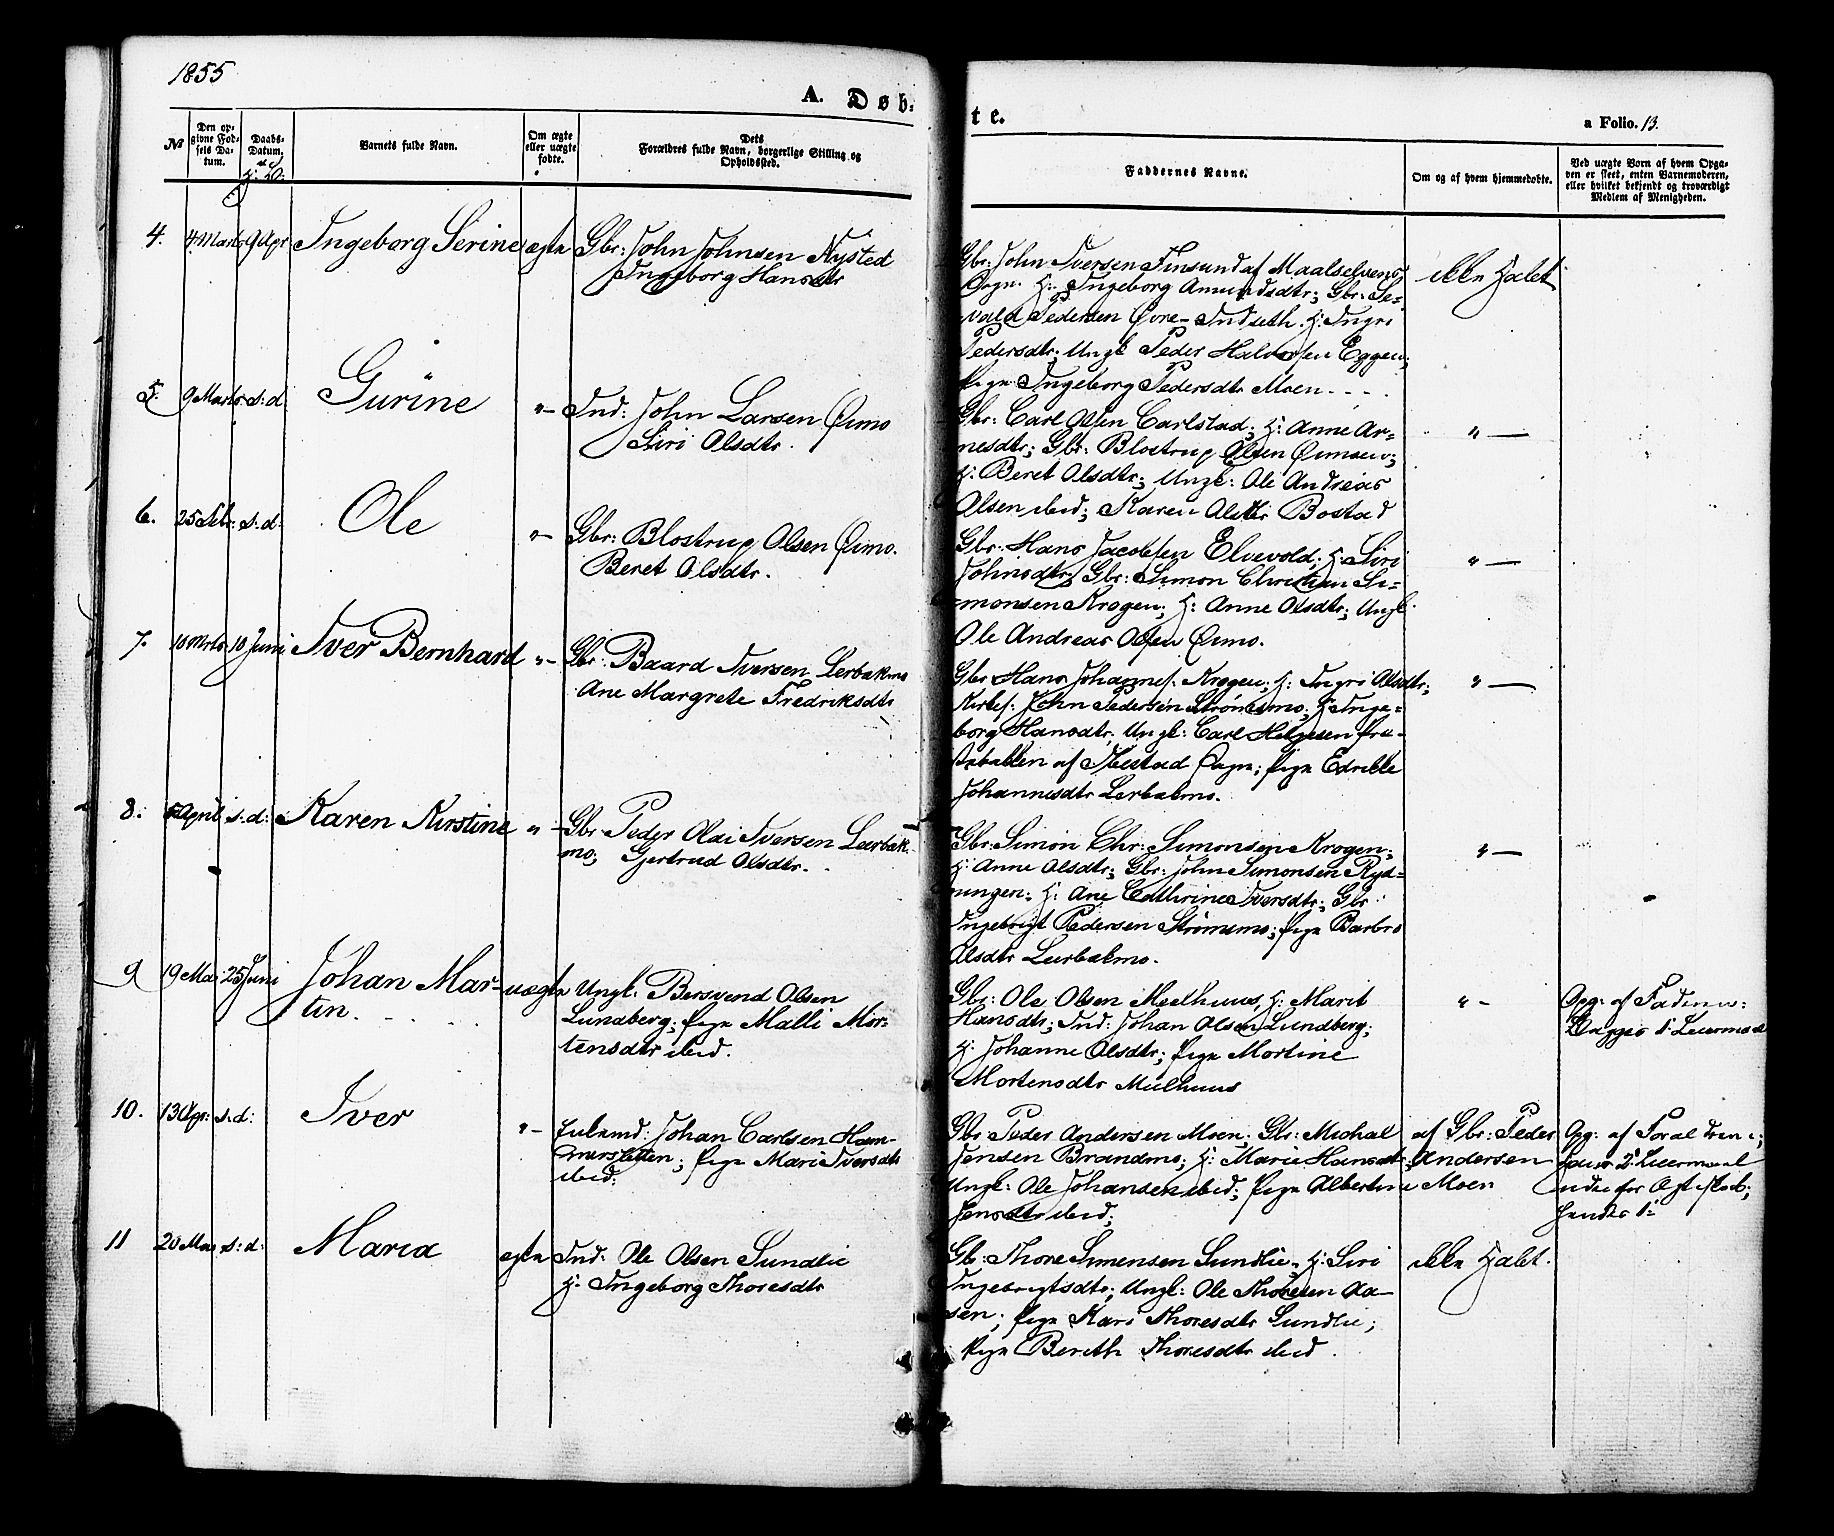 1855
A. Døb-
te.
a Folio. 13.
№
Den op-
givne Fød-
sels Da-
tum.
Daabs-
Datum.
Barnets fulde Navn.
Om ægte
eller uægte
fødte.
Dets
Forældres fulde Navn, borgerlige Stilling og
Opholdssted.
Faddernes Navne.
Om og af hvem hjemmedøbte.
Ved uægte Born af hvem Opga-
ven er skeet, enten Barnemoderen,
eller hvilket bekjendt og troværdigt
Medlem af Menigheden.
4. 4 Marts 9 Apr Ingeborg Serine ægte Gbr: John Johnsen Nysted
Ingeborg Hansdtr
Gbr: John Iversen Finsund af Maalselvens
Sogn. H: Ingeborg Amundsdtr; Gbr: Se-
vald Pedersen Øvre-Indseth. H: Ingri
Pedersdtr; Ungk Peder Halvorsen Eggen;
Pige Ingeborg Pedersdtr Moen
ikke Halet
5. 9 Marts s: d. Gurine "- Ind: John Larsen Ørmo
Siri Olsdtr.
Gbr: Carl Olsen Carlstad; H: Anne Ar-
nesdtr; Gbr: Blostrup Olsen
H: Beret Olsdtr; Ungk: Ole Andreas
Olsen ibid; Karen Bostad
"-
6. 25 Febr: s: d: Ole "- Gbr: Blostrup Olsen Ørmo.
Beret Olsdtr.
Gbr: Hans Jacobsen Elvevold; H: Siri
Johnsdtr; Gbr: Simon Christian Si-
monsen Krogen; H: Anne Olsdtr; Ungk:
Ole Andreas Olsen Ørmo.
"-
7. 10 Mrts 10 Juni Iver Bernhard "- Gbr: Baard Iversen Lerbakmo
Ane Margrete Fredriksdtr
Gbr Hans Johannes. Krogen; H: Ingri Olsdtr;
John Pedersen Strømsmo; H: Inge-
borg Hansdtr, Ungk: Carl Helgesen fra
af Ibestad Sogn; Pige
Johannesdtr Lerbakmo.
"-
8. April s: d: Karen Kirstine "- Gbr Peder Olai Iversen Leerbak-
mo; Gjertrud Olsdtr.
Gbr: Simon Chr: Simonsen Krogen;
H: Anne Olsdtr; Gbr: John Simonsen Ryd-
ningen; H: Ane Cathrine Iversdtr; Gbr
Ingebrigt Pedersen Strømsmo; Pige Barbro
Olsdtr Leerbakmo.
"-
9 19 Mai 25 Juni Johan Mar-
tin. uægte Ungk. Bersvend Olsen
Lundberg; Pige Malli Mor-
tensdtr ibid.
Gbr: Ole Olsen Meelhuus, H: Marit
Hansdtr; Ind: Johan Olsen Lundberg;
H: Johanne Olsdtr; Pige Mortine
Mortensdtr Meelhuus
"-
Opg: af Faderen:
Begges 1' Leiermaal
10. 13 Apr: s: d: Iver "- Johan Carlsen Ham-
mersletten; Pige Mari Iversdtr
ibid:
Gbr: Peder Andersen Moen; Gbr: Michal
Jensen Brandmo; H: Marie Hansdtr;
Ungk: Ole Johansen ibid; Pige Albertine
Jensdtr ibid;
af Gbr: Peder
Andersen
Moen
Opg: af Forældrene;
hans 2' Leiermaal
for Ægteskab;
hendes 1'
11 20 Mai s: d: Maria egte Ind: Ole Olsen Sundlie
H: Ingeborg Thoresdtr
Gbr: Thore Simensen Sundlie; H: Siri
Ingebrigtsdtr; Ungk: Ole Thoresen Aa-
sen; Pige Kari Thoresdtr Sundlie;
Pige Bereth Thoresdtr ibid.
ikke Halet.